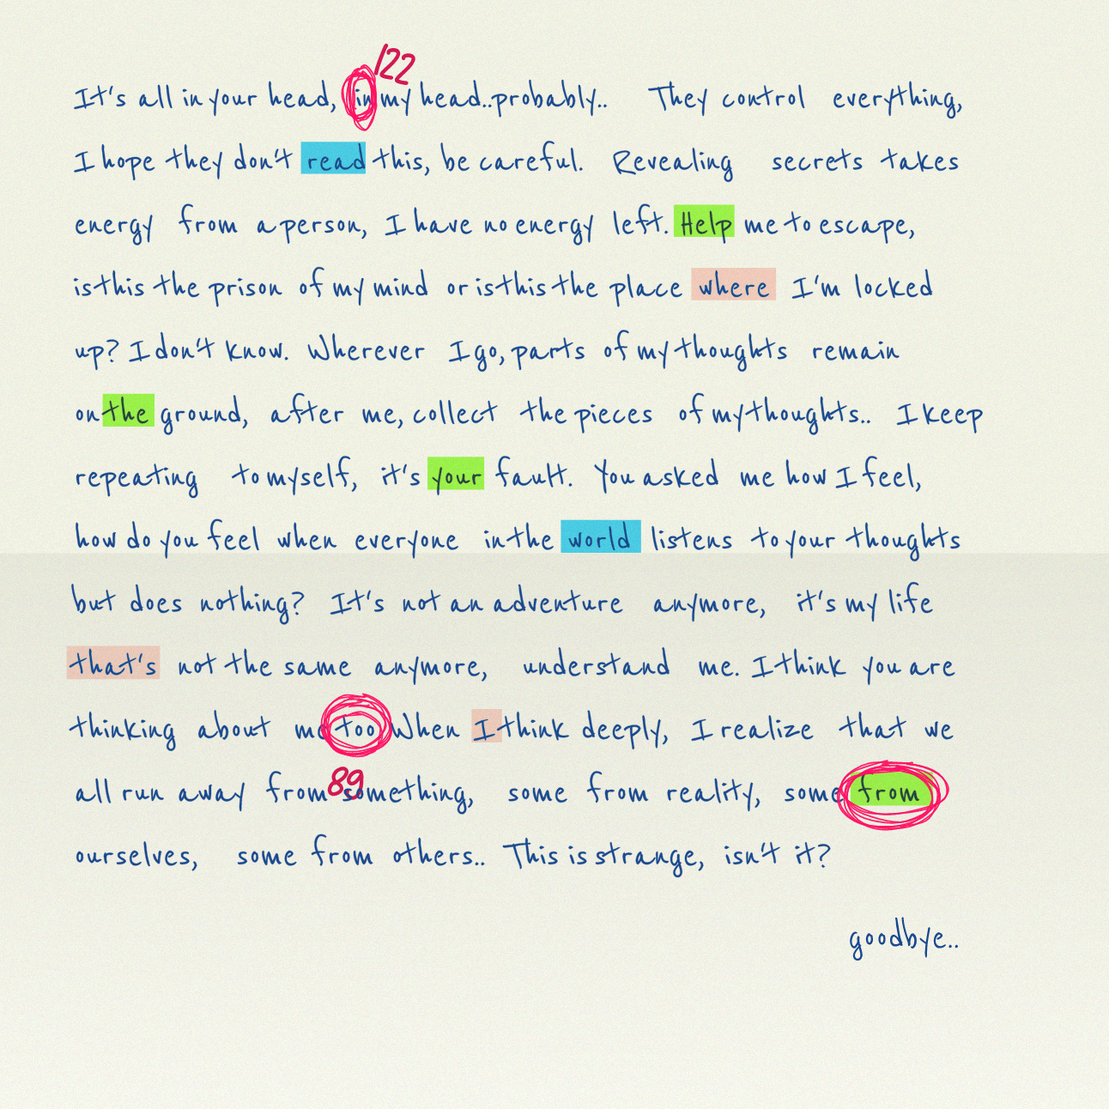 122
It's all in your head, in my head..probably.. They control everything,
I hope they don't read this, be careful. Revealing secrets takes
energy from a person, I have no energy left. Help me to escape,
is this the prison of my mind or is this the place where I'm locked
up? I don't know. Wherever I go, parts of my thoughts remain
on the ground, after me, collect the pieces of my thoughts.. I keep
repeating to myself, it's your fault. You asked me how I feel,
how do you feel when everyone in the world listens to your thoughts
but does nothing? It's not an adventure anymore, it's my life
that's not the same anymore, understand me. I think you are
thinking about me too When I think deeply, I realize that we
89
all run away from something, some from reality, some from
ourselves, some from others.. This is strange, isn't it?
goodbye..